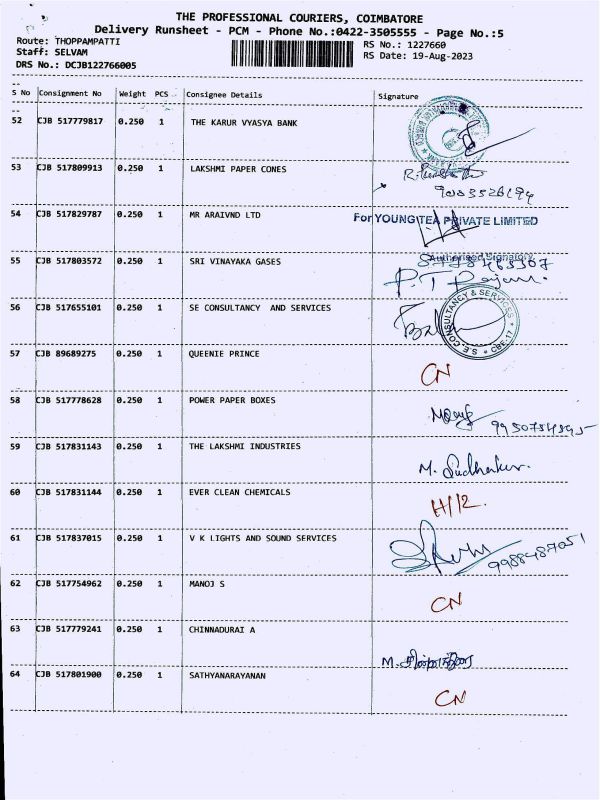 THE PROFESSIONAL COURIERS, COIMBATORE
Delivery Runsheet - PCM - Phone No.:0422-3505555 - Page No.:5
Route: THOPPAMPATTI
Staff: SELVAM
DRS No.: DCJB122766005
RS No.: 1227660
RS Date: 19-Aug-2023
S No Consignment No Weight PCS Consignee Details Signature
52 CJB 517779817 0.250 1 THE KARUR VYASYA BANK
53 CJB 517809913 0.250 1 LAKSHMI PAPER CONES
54 CJB 517829787 0.250 1 MR ARAIVND LTD For YOUNG TEA PRIVATE LIMITED
Authorised Signatory
55 CJB 517803572 0.250 1 SRI VINAYAKA GASES
56 CJB 517655101 0.250 1 SE CONSULTANCY AND SERVICES S.E. CONSULTANCY & SERVICES * CBE-17 *
57 CJB 89689275 0.250 1 QUEENIE PRINCE CN
58 CJB 517778628 0.250 1 POWER PAPER BOXES
59 CJB 517831143 0.250 1 THE LAKSHMI INDUSTRIES M. Sudhakar.
60 CJB 517831144 0.250 1 EVER CLEAN CHEMICALS H/12.
61 CJB 517837015 0.250 1 V K LIGHTS AND SOUND SERVICES 9988487051
62 CJB 517754962 0.250 1 MANOJ S CN
63 CJB 517779241 0.250 1 CHINNADURAI A M. சின்னதுரை
64 CJB 517801900 0.250 1 SATHYANARAYANAN CN